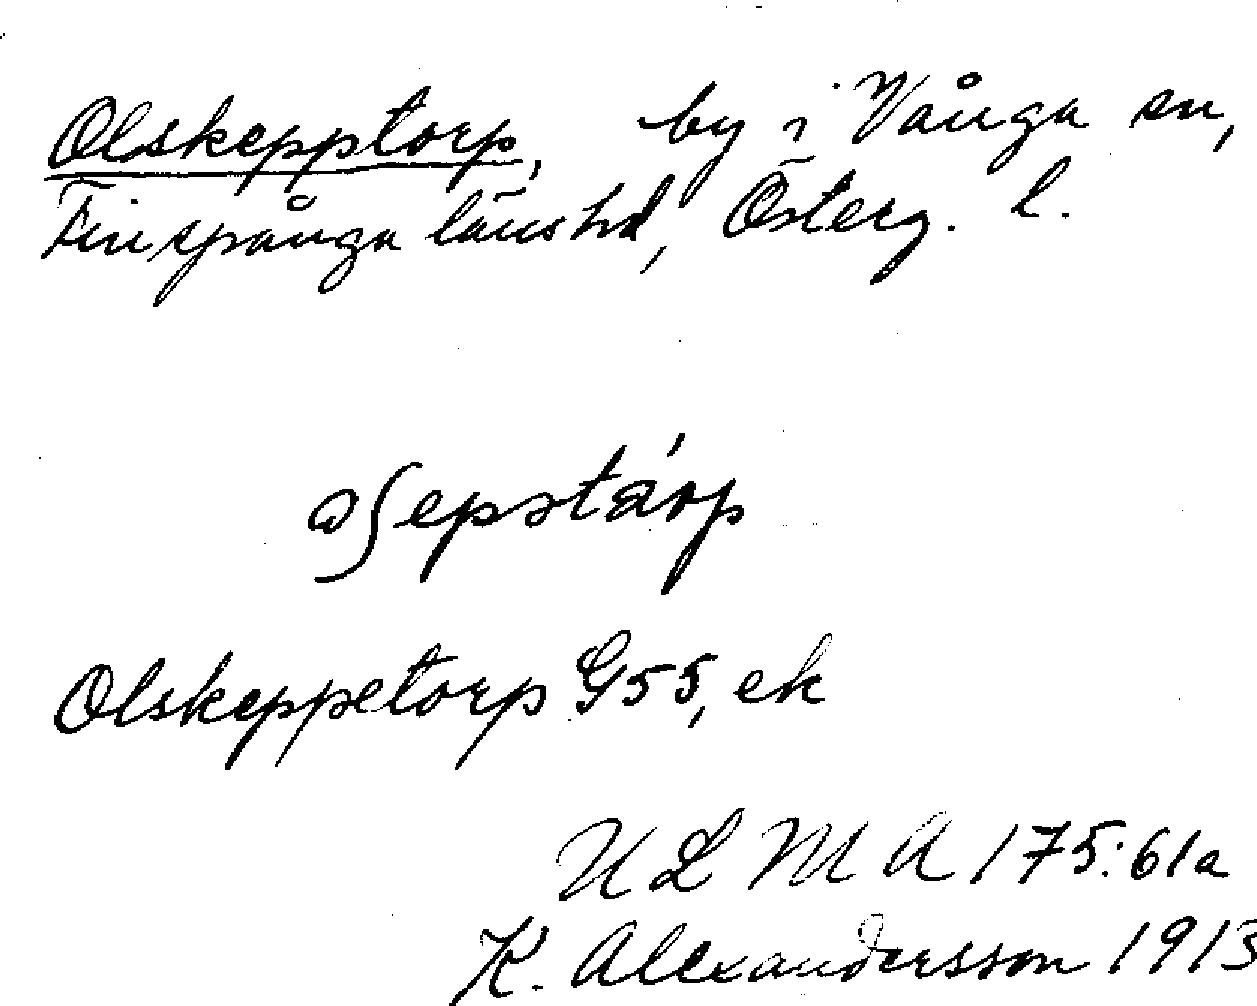 Olskepptorp, by i Vånga sn,
Finspånga länshd, Österg. l.
Olskeppetorp G55, ek
ULMA 175:61a
K. Alexandersson 1913